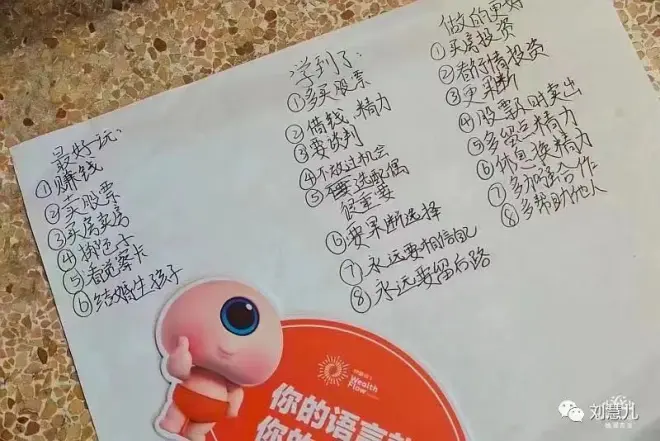 最好玩:
①赚钱
②卖股票
③买房卖房
④掷骰子
⑤看觉察卡
⑥结婚生孩子
学到了:
①多买股票
②借钱、精力
③要谈判
④不放过机会
⑤选配偶
很重要
⑥要果断选择
⑦永远要相信自己
⑧永远要留后路
做的更好
①买房投资
②看行情投资
③更果断
④股票及时卖出
⑤多留点精力
⑥休息换精力
⑦多加强合作
⑧多帮助他人
Wealth
Flow
你的语言就
你的
刘慧儿